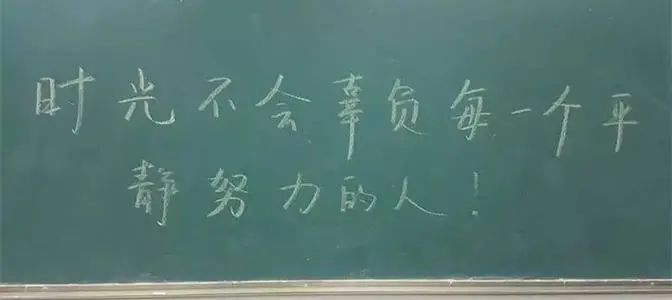 时光不会辜负每一个平
静努力的人！